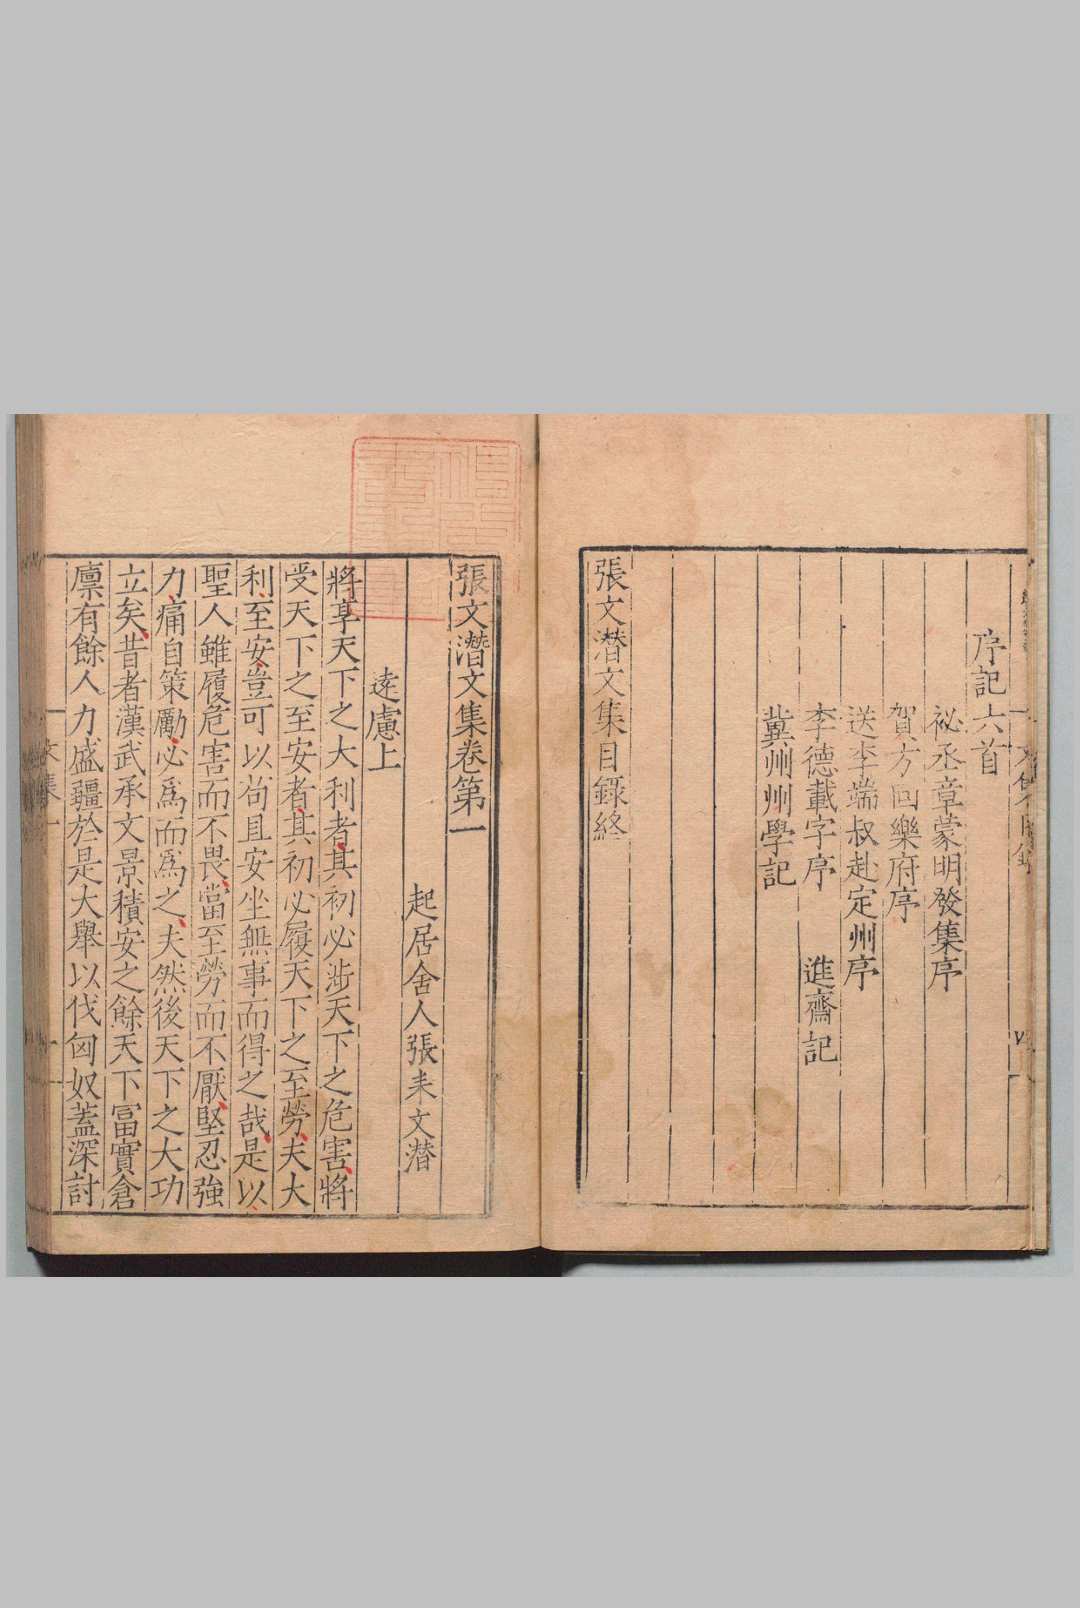 序記六首
祕丞章蒙明發集序
賀方回樂府序
送李端叔赴定州序
李德載字序 進齋記
冀州州學記
張文潛文集目錄終
張文潛文集卷第一
起居舍人張耒文潛
遠慮上
將享天下之大利者其初必涉天下之危害將
受天下之至安者其初必履天下之至勞夫大
利至安豈可以苟且安坐無事而得之哉是以
聖人雖履危害而不畏當至勞而不厭堅忍強
力痛自策勵必爲而爲之夫然後天下之大功
立矣昔者漢武承文景積安之餘天下富實倉
廪有餘人力盛疆於是大舉以伐匈奴蓋深討
文集一